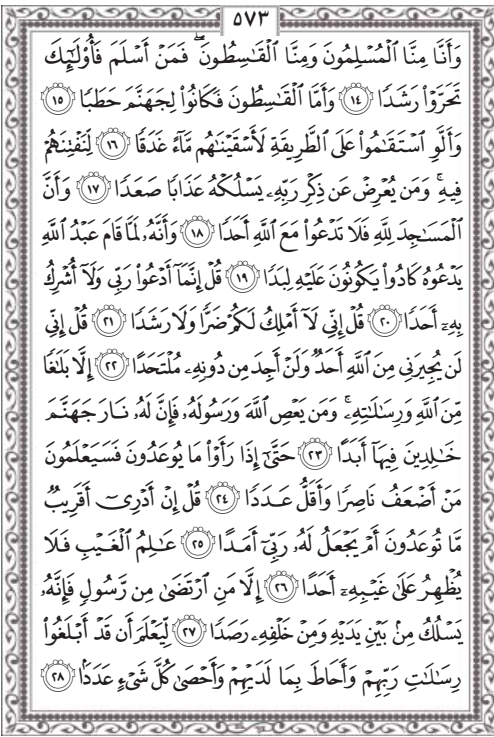 ٥٧٣
وَأَنَّا مِنَّا ٱلْمُسْلِمُونَ وَمِنَّا ٱلْقَٰسِطُونَۖ فَمَنْ أَسْلَمَ فَأُو۟لَٰٓئِكَ
تَحَرَّوْا۟ رَشَدًا ۝١٤ وَأَمَّا ٱلْقَٰسِطُونَ فَكَانُوا۟ لِجَهَنَّمَ حَطَبًا ۝١٥
وَأَلَّوِ ٱسْتَقَٰمُوا۟ عَلَى ٱلطَّرِيقَةِ لَأَسْقَيْنَٰهُم مَّآءً غَدَقًا ۝١٦ لِّنَفْتِنَهُمْ
فِيهِۚ وَمَن يُعْرِضْ عَن ذِكْرِ رَبِّهِۦ يَسْلُكْهُ عَذَابًا صَعَدًا ۝١٧ وَأَنَّ
ٱلْمَسَٰجِدَ لِلَّهِ فَلَا تَدْعُوا۟ مَعَ ٱللَّهِ أَحَدًا ۝١٨ وَأَنَّهُۥ لَمَّا قَامَ عَبْدُ ٱللَّهِ
يَدْعُوهُ كَادُوا۟ يَكُونُونَ عَلَيْهِ لِبَدًا ۝١٩ قُلْ إِنَّمَآ أَدْعُوا۟ رَبِّى وَلَآ أُشْرِكُ
بِهِۦٓ أَحَدًا ۝٢٠ قُلْ إِنِّى لَآ أَمْلِكُ لَكُمْ ضَرًّا وَلَا رَشَدًا ۝٢١ قُلْ إِنِّى
لَن يُجِيرَنِى مِنَ ٱللَّهِ أَحَدٌ وَلَنْ أَجِدَ مِن دُونِهِۦ مُلْتَحَدًا ۝٢٢ إِلَّا بَلَٰغًا
مِّنَ ٱللَّهِ وَرِسَٰلَٰتِهِۦۚ وَمَن يَعْصِ ٱللَّهَ وَرَسُولَهُۥ فَإِنَّ لَهُۥ نَارَ جَهَنَّمَ
خَٰلِدِينَ فِيهَآ أَبَدًا ۝٢٣ حَتَّىٰٓ إِذَا رَأَوْا۟ مَا يُوعَدُونَ فَسَيَعْلَمُونَ
مَنْ أَضْعَفُ نَاصِرًا وَأَقَلُّ عَدَدًا ۝٢٤ قُلْ إِنْ أَدْرِىٓ أَقَرِيبٌ
مَّا تُوعَدُونَ أَمْ يَجْعَلُ لَهُۥ رَبِّىٓ أَمَدًا ۝٢٥ عَٰلِمُ ٱلْغَيْبِ فَلَا
يُظْهِرُ عَلَىٰ غَيْبِهِۦٓ أَحَدًا ۝٢٦ إِلَّا مَنِ ٱرْتَضَىٰ مِن رَّسُولٍ فَإِنَّهُۥ
يَسْلُكُ مِنۢ بَيْنِ يَدَيْهِ وَمِنْ خَلْفِهِۦ رَصَدًا ۝٢٧ لِّيَعْلَمَ أَن قَدْ أَبْلَغُوا۟
رِسَٰلَٰتِ رَبِّهِمْ وَأَحَاطَ بِمَا لَدَيْهِمْ وَأَحْصَىٰ كُلَّ شَىْءٍ عَدَدًۢا ۝٢٨